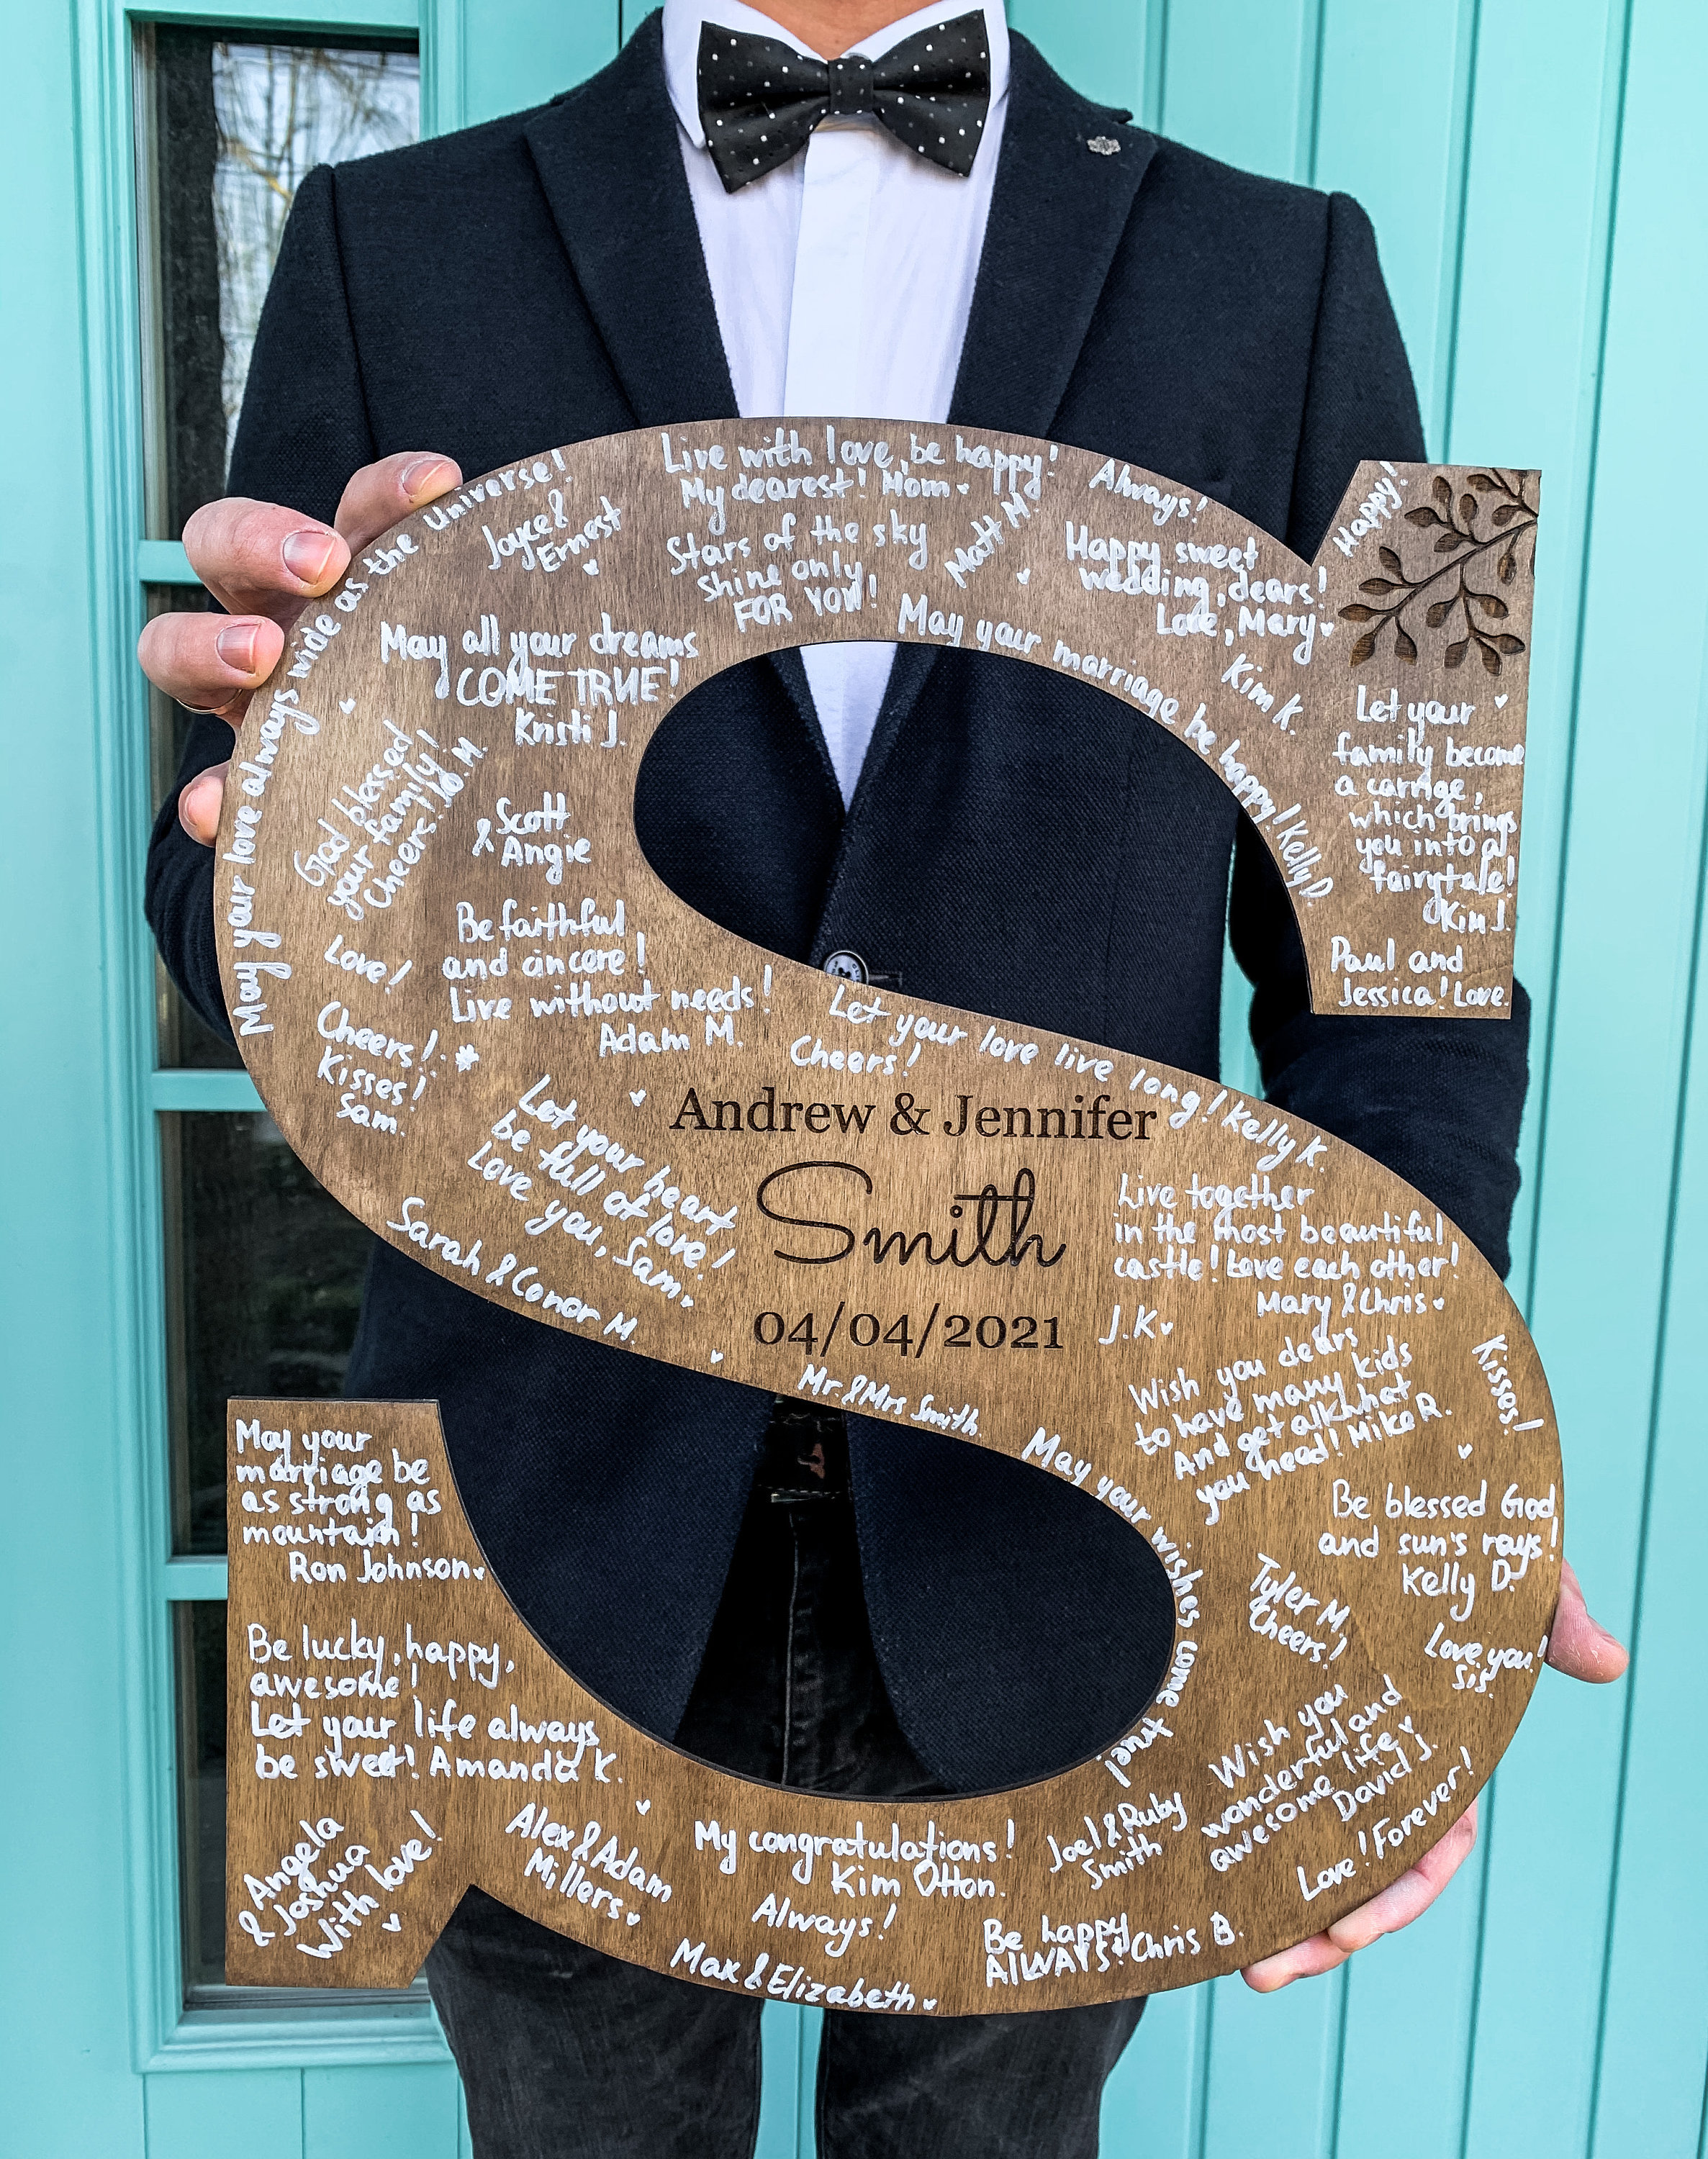 May your love always wide as the Universe!
Joyce &
Ernest
Live with love, be happy!
My dearest! Mom
Stars of the sky
shine only
FOR YOU!
Matt M.
Always!
Happy sweet
wedding, dears!
Love, Mary
Happy!
May all your dreams
COME TRUE!
Kristi J.
May your marriage be happy! Kelly D
Kim K.
Let your
family become
a carrige,
which brings
you into a
fairytale!
Kim J.
Paul and
Jessica! Love.
God blessed
your family!
Cheers!
Scott
& Angie
Love!
Be faithful
and sincere!
Live without needs!
Adam M.
Cheers!
Kisses!
Sam.
Let your love live long! Kelly K.
Cheers!
Let your heart
be full of love!
Love you, Sam.
Sarah & Conor M.
Andrew & Jennifer
Smith
04/04/2021
Live together
in the most beautiful
castle! Love each other!
Mary & Chris
J.K
Mr & Mrs Smith
Wish you dears
to have many kids
And get all what
you need! Mike R.
Kisses!
May your wishes come true!
Be blessed God
and sun's rays!
Kelly D.
Tyler M.
Cheers!
Love you!
Sis.
Wish you
wonderful and
awesome life
David J.
Love! Forever!
May your
marriage be
as strong as
mountain!
Ron Johnson
Be lucky, happy,
awesome!
Let your life always
be sweet! Amanda K.
Angela
& Joshua
With love!
Alex & Adam
Millers
My congratulations!
Kim Otton.
Always!
Max & Elizabeth
Joel & Ruby
Smith
Be happy
ALWAYS! Chris B.